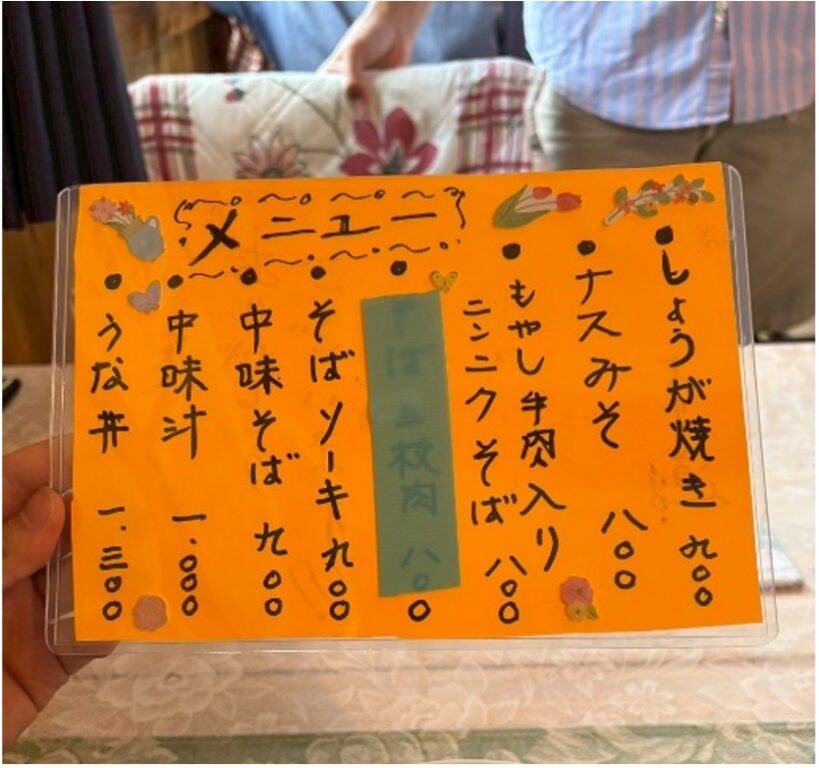 メニュー
しょうが焼き 九〇〇
ナスみそ 八〇〇
もやし牛肉入り
ニンニクそば 八〇〇
そば三枚肉 八〇〇
そばソーキ 九〇〇
中味そば 九〇〇
中味汁 一.〇〇〇
うな丼 一.三〇〇